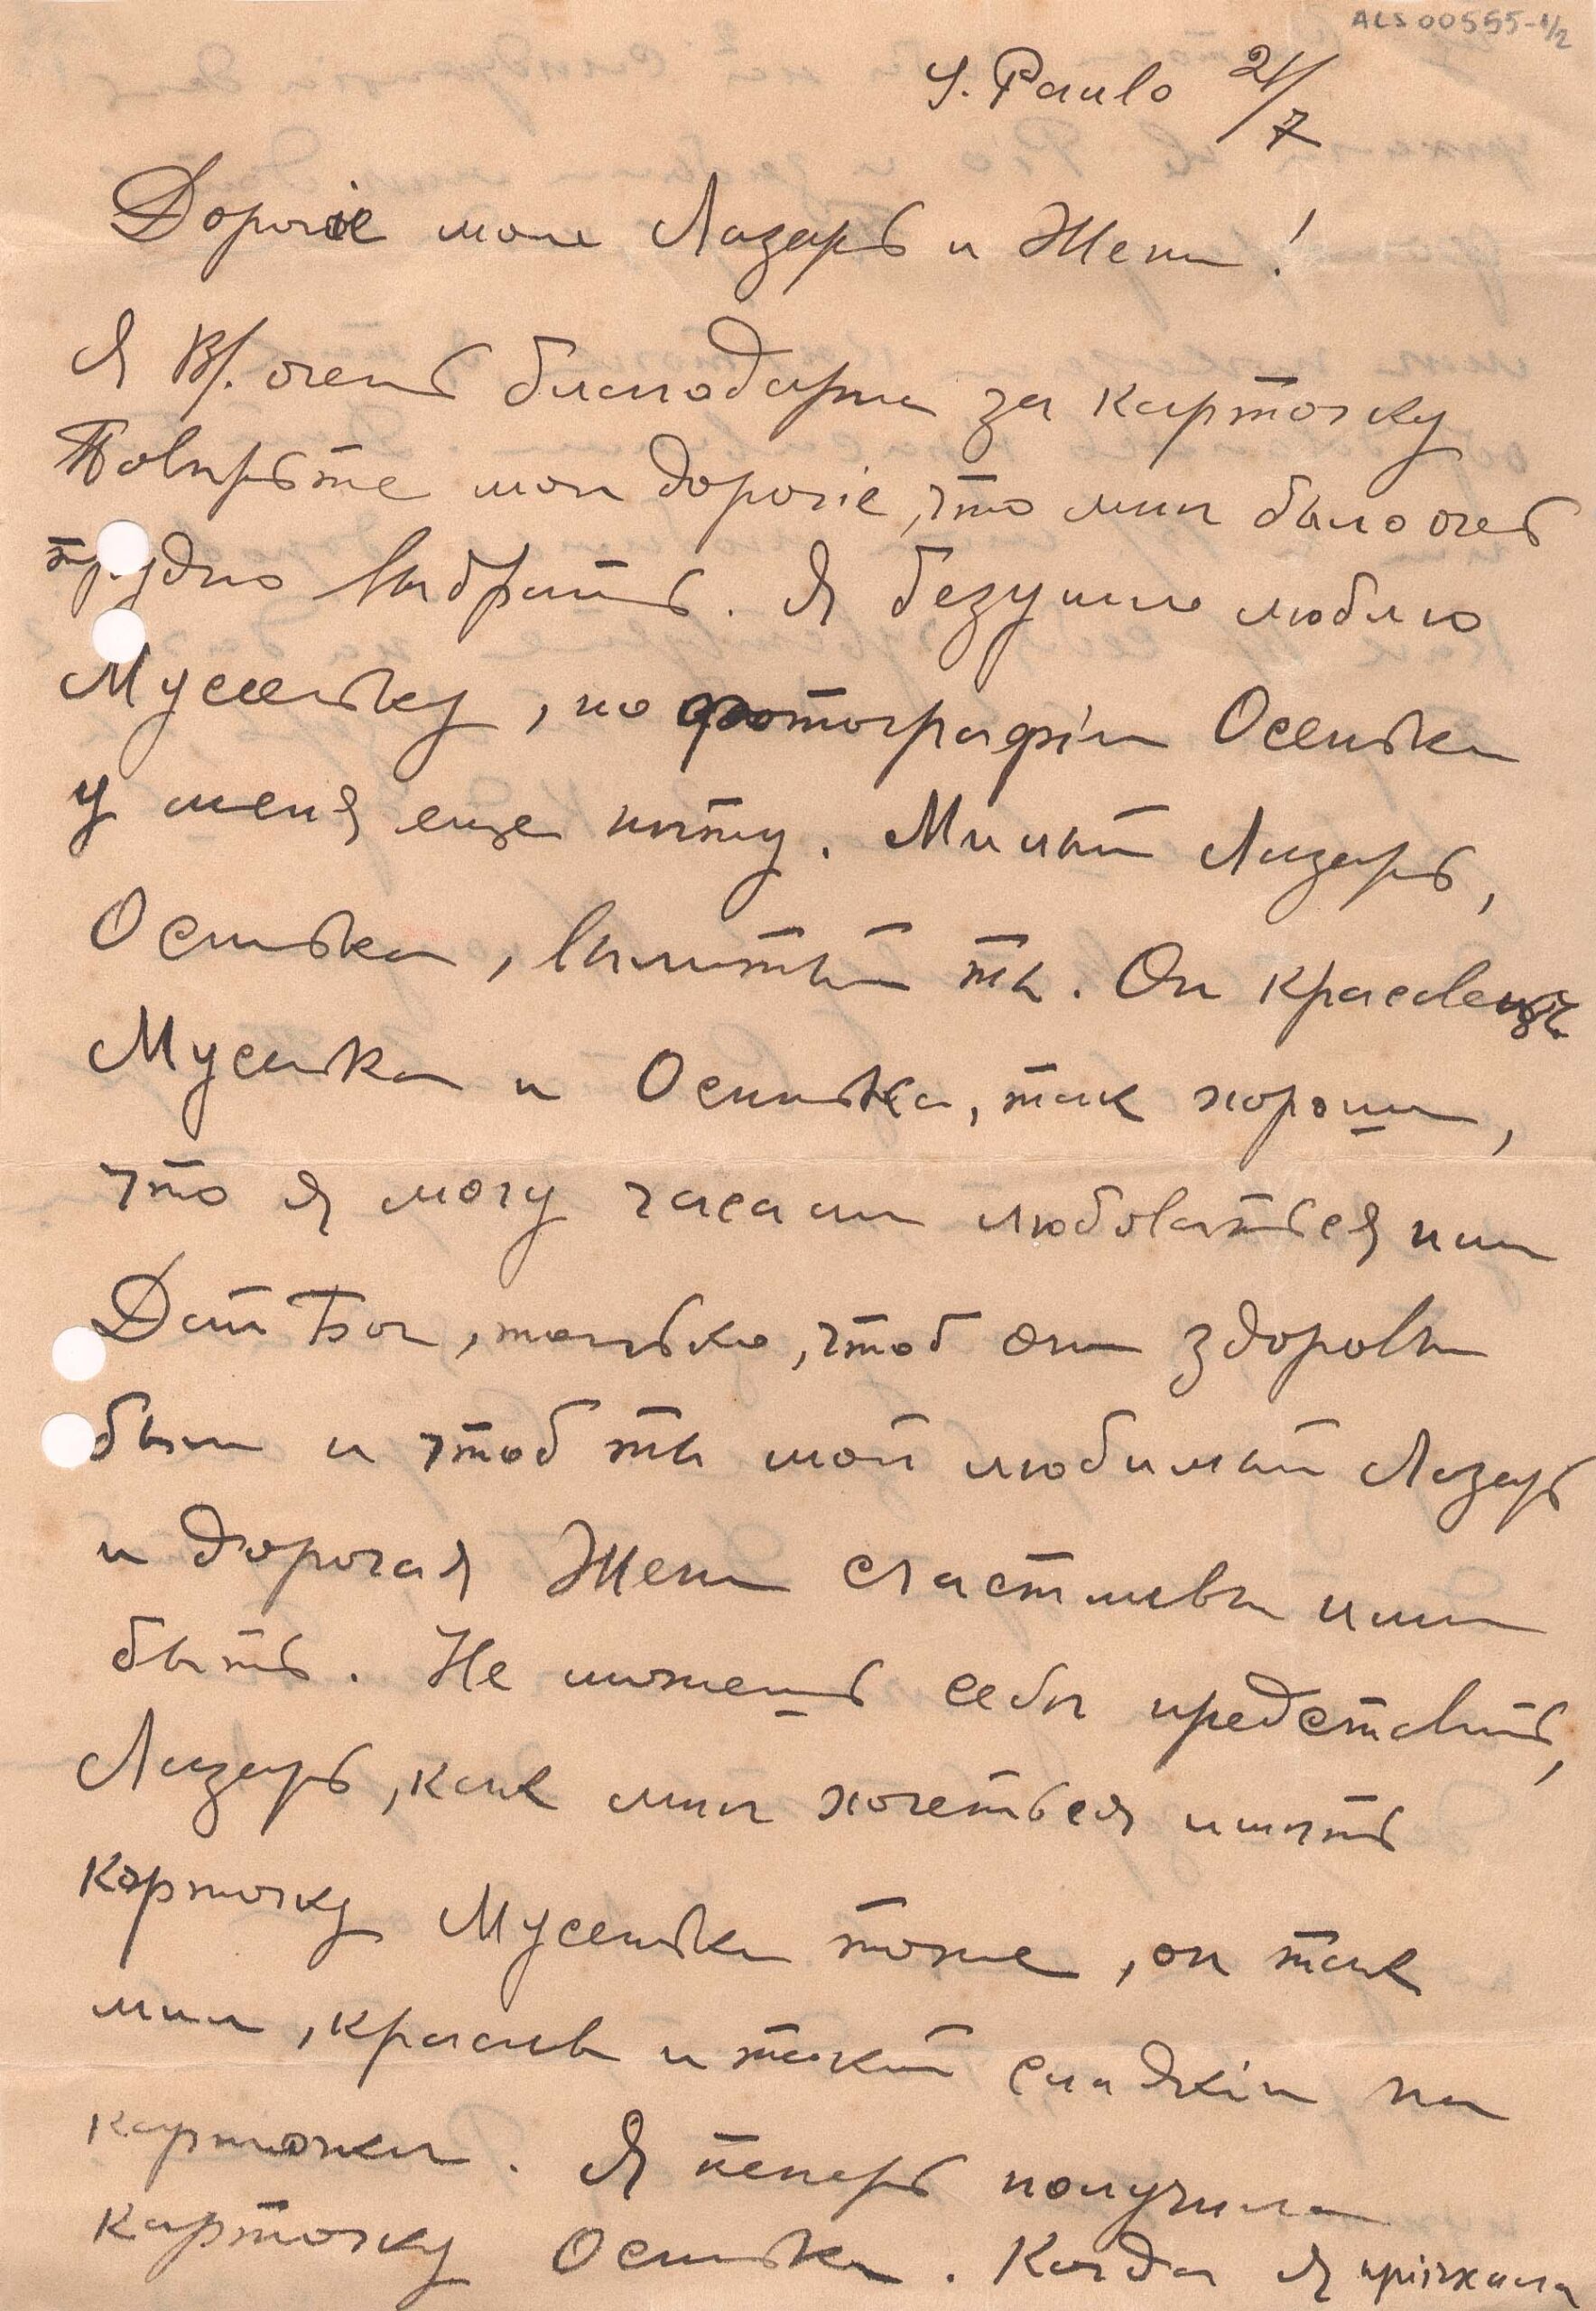 ALS 00555-1/2
S. Paulo 21/7
Дорогіе мои Лазарь и Жени!
Я В/. очень благодарна за карточку
Повѣрьте мои дорогіе, что мнѣ было очень
трудно выбрать. Я безумно люблю
Мусеньку, но фотографіи Осеньки
у меня еще нѣту. Милый Лазарь,
Осинька, вылитый ты. Он красавец
Мусинька и Осинька, так хороши,
что я могу часами любоваться ими
Дай Бог, только, чтоб они здоровы
были и чтоб ты мой любимый Лазарь
и дорогая Жени счастливы ими
быть. Не можешь себѣ представить,
Лазарь, как мнѣ хочеться имѣть
карточку Мусеньки тоже, он так
мил, красив и такой сладкій на
карточки. Я теперь получила
карточку Осиньки. Когда я пріѣхала